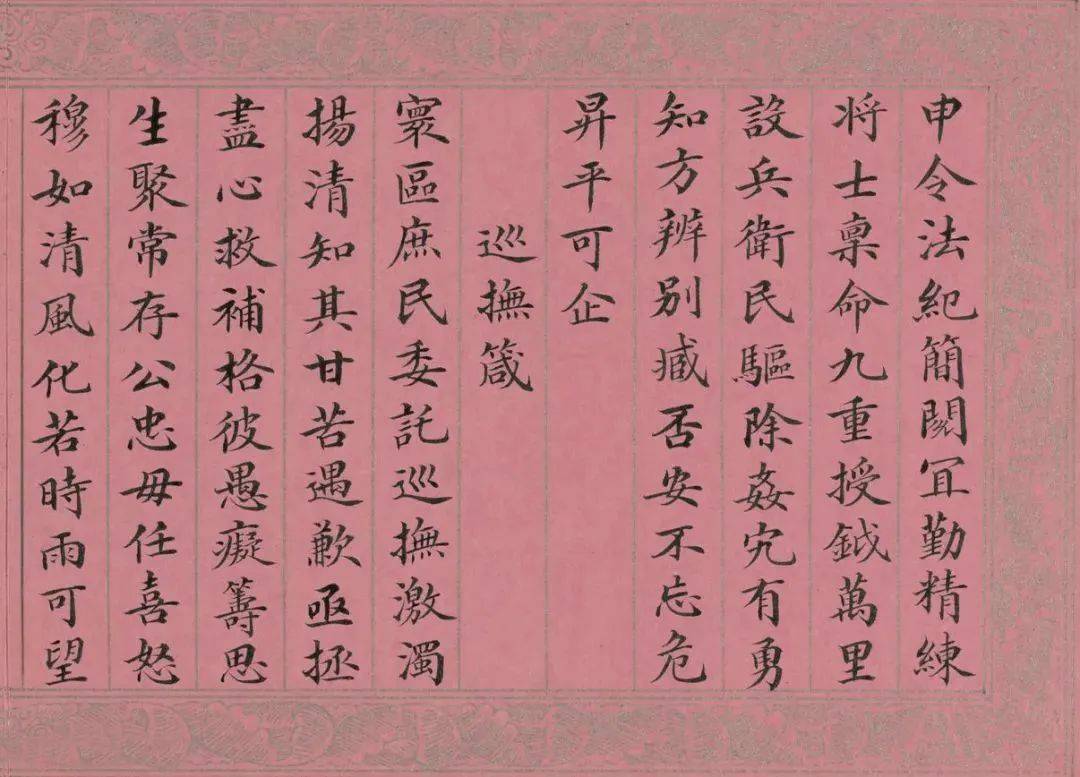 申令法紀簡閱宜勤精練
將士稟命九重授鉞萬里
設兵衛民驅除姦宄有勇
知方辨別臧否安不忘危
昇平可企
巡撫箴
寰區庶民委託巡撫激濁
揚清知其甘苦遇歉亟拯
盡心救補格彼愚癡籌思
生聚常存公忠毋任喜怒
穆如清風化若時雨可望